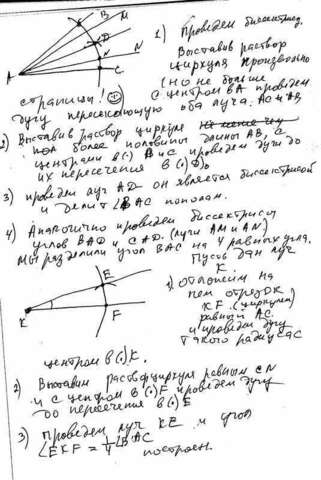 B
M
D
N
C
A
1) Проведем биссектрису.
Выставив раствор
циркуля произвольно
(но не больше
страницы!
с центром в А проведем
дугу пересекающую оба луча. АС и АВ
2) Выставив раствор циркуля
чуть более половины длины АВ, с
центрами в (·) В и С проведем дуги до
их пересечения в (·) D.
3) проведем луч AD он является биссектрисой
и делит ∠BAC пополам.
4) Аналогично проведем биссектрисы
углов BAD и CAD. (лучи AM и AN)
Мы разделили угол BAC на 4 равных угла.
Пусть дан луч
К.
1) отложим на
нем отрезок
KF. (циркулем)
равный АС.
и проведем дугу
такого радиуса с
E
K
F
центром в (·) K.
2) Выставим раствор циркуля равным CN
и с центром в (·) F проведем дугу
до пересечения в (·) E
3) Проведем луч KE и угол
∠EKF = 1/4 ∠BAC
построен.